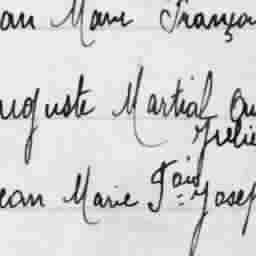 an Marie François
uguste Martial Au
Julie
ean Marie Fois Josep